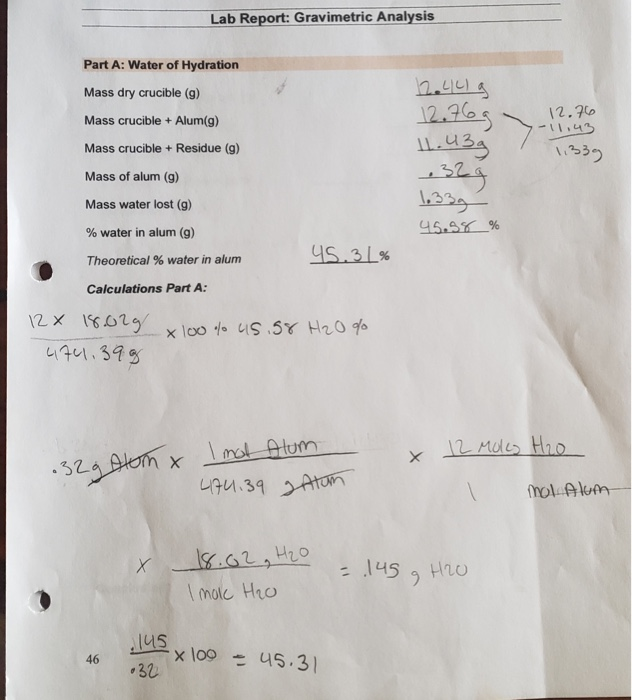 Lab Report: Gravimetric Analysis
Part A: Water of Hydration
Mass dry crucible (g) 12.44 g
Mass crucible + Alum(g) 12.76g 12.76
Mass crucible + Residue (g) 11.43g -11.43
1.33g
Mass of alum (g) .32g
Mass water lost (g) 1.33g
% water in alum (g) 45.58 %
Theoretical % water in alum 45.31 %
Calculations Part A:
12 x 18.02g
x 100 % 45.58 H2O %
474.39g
.32g Alum x 1 mol Alum x 12 Moles H2O
474.39 g Alum 1 mol Alum
x 18.02 g H2O = .145 g H2O
1 mole H2O
.145
46 x 100 = 45.31
.32